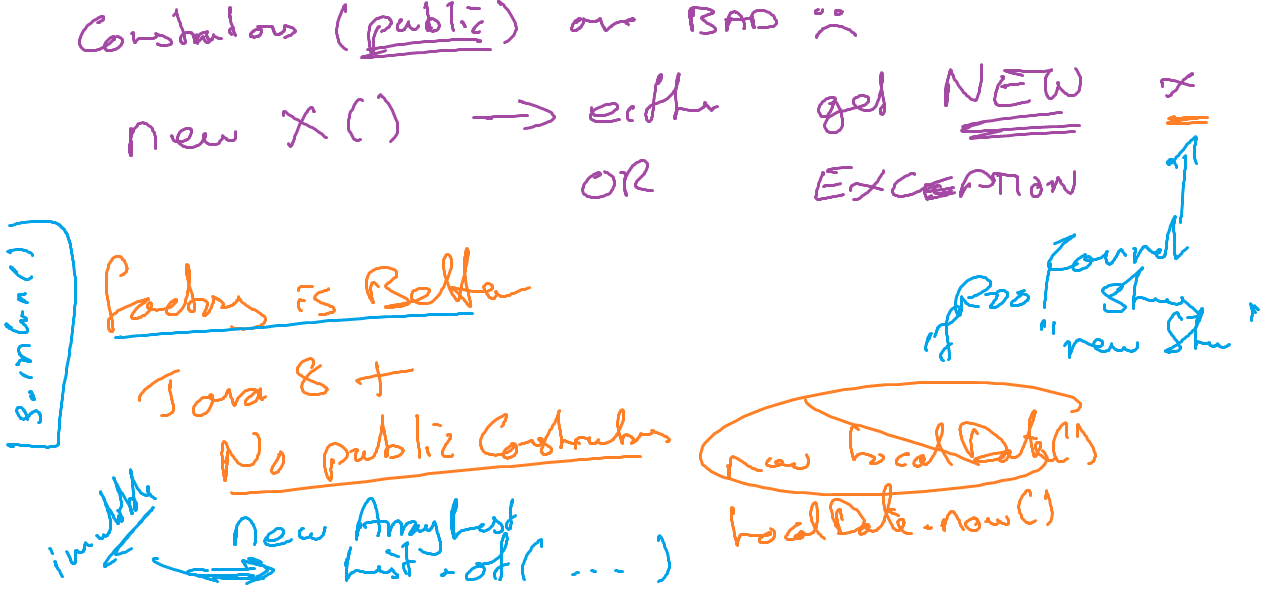 Constructors (public) are BAD
new X() → either get NEW X
OR EXCEPTION
Factory is Better
Java 8 +
No public Constructors
new LocalDate()
LocalDate.now()
new ArrayList
List.of( ... )
immutable
found
if Foo
"new